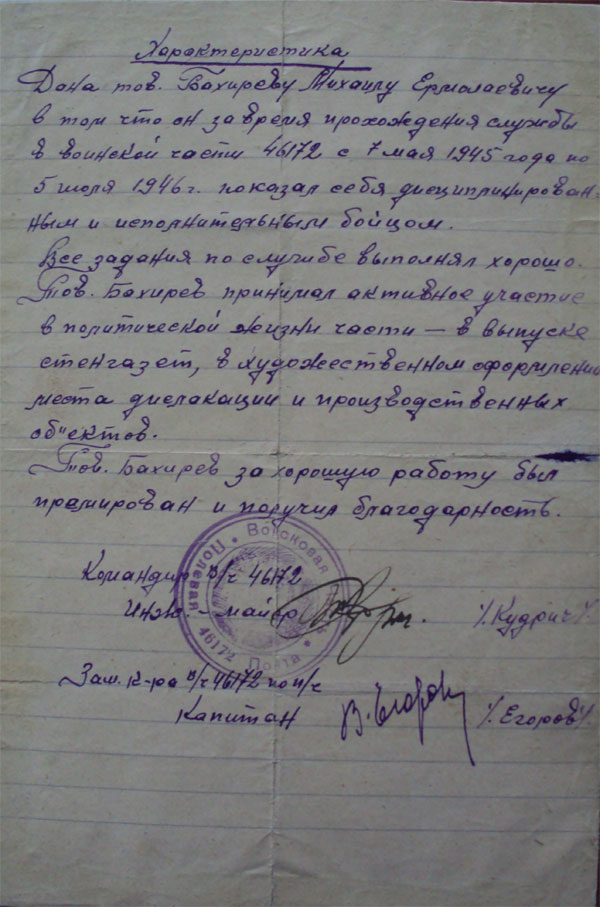 Характеристика
Дана тов. Бахиреву Михаилу Ермолаевичу
в том что он за время прохождения службы
в воинской части 46172 с 7 мая 1945 года по
5 июля 1946 г. показал себя дисциплинирован-
ным и исполнительным бойцом.
Все задания по службе выполнял хорошо.
Тов. Бахирев принимал активное участие
в политической жизни части — в выпуске
стенгазет, в художественном оформлении
места дислакации и производственных
об"ектов.
Тов. Бахирев за хорошую работу был
премирован и получил благодарность.
Войсковая Полевая 46172 Почта
Командир в/ч 46172
Инж. - майор /. Кудрич /.
Зам. к-ра в/ч 46172 по п/ч
Капитан В. Егоров /. Егоров /.